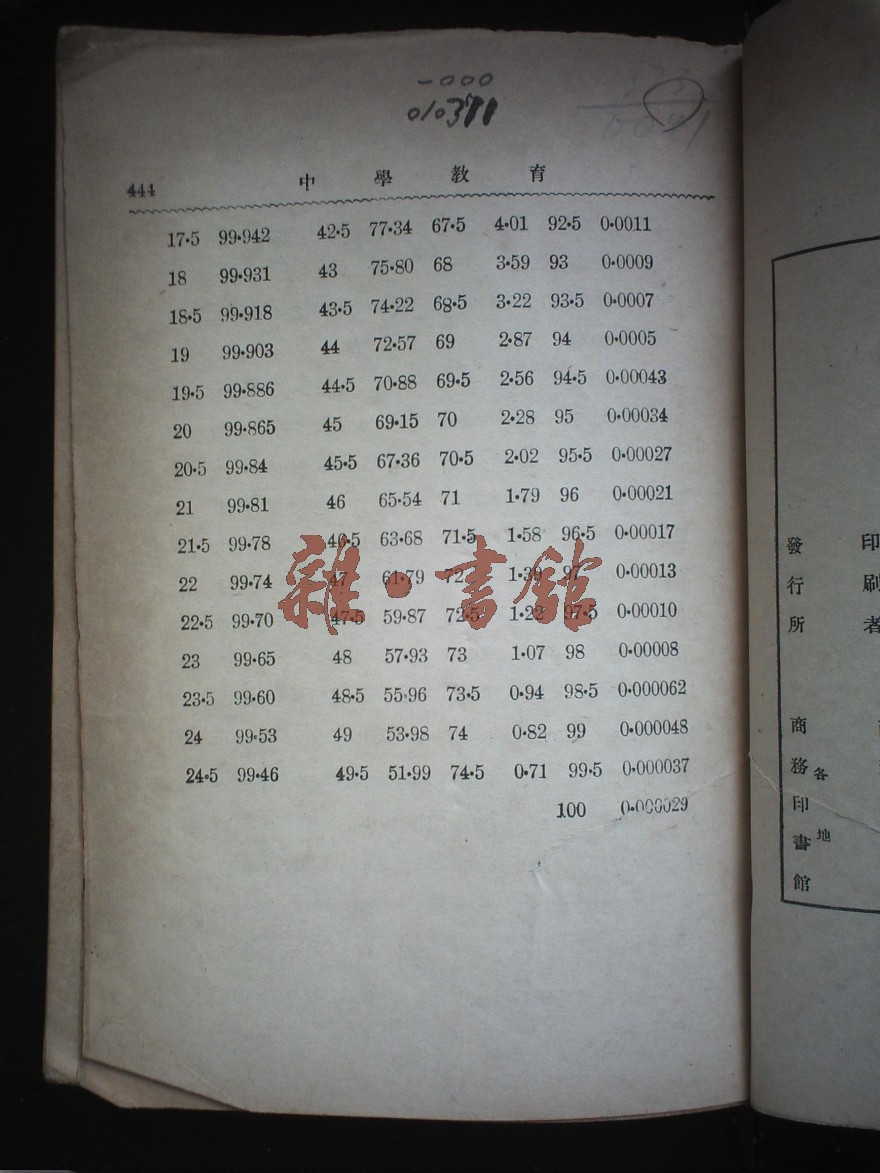 -000
010371
444 中學教育
17·5 99·942 42·5 77·34 67·5 4·01 92·5 0·0011
18 99·931 43 75·80 68 3·59 93 0·0009
18·5 99·918 43·5 74·22 68·5 3·22 93·5 0·0007
19 99·903 44 72·57 69 2·87 94 0·0005
19·5 99·886 44·5 70·88 69·5 2·56 94·5 0·00043
20 99·865 45 69·15 70 2·28 95 0·00034
20·5 99·84 45·5 67·36 70·5 2·02 95·5 0·00027
21 99·81 46 65·54 71 1·79 96 0·00021
21·5 99·78 46·5 63·68 71·5 1·58 96·5 0·00017
22 99·74 47 61·79 72 1·39 97 0·00013
22·5 99·70 47·5 59·87 72·5 1·22 97·5 0·00010
23 99·65 48 57·93 73 1·07 98 0·00008
23·5 99·60 48·5 55·96 73·5 0·94 98·5 0·000062
24 99·53 49 53·98 74 0·82 99 0·000048
24·5 99·46 49·5 51·99 74·5 0·71 99·5 0·000037
100 0·000029
雜·書館
印刷者
發行所
各地
商務印書館